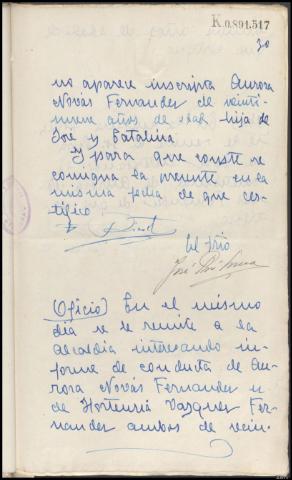 K.0.891.517
30
no aparece inscripta Aurora
Novás Fernandez de veinti-
nueve años de edad hija de
José y Catalina.
Y para que conste se
consigna la presente en la
misma fecha de que cer-
tifico
El Srio
José
(Oficio) En el mismo
dia se le remite a la
alcaldia interesando in-
forme de conducta de Au-
rora Novás Fernandez y
de Hortensia Vazquez Fer-
nandez ambas de vein-